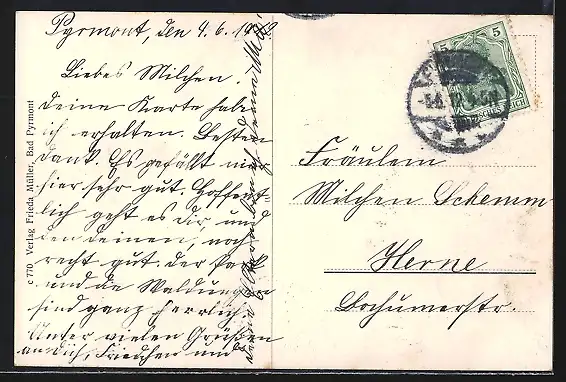 Pyrmont, den 4.6.19
Liebes Milchen.
Deine Karte habe
ich erhalten. Besten
Dank. Es gefällt mir
hier sehr gut. Hoffent
lich geht es dir, und
den deinen, noch
recht gut. Der Park
und die Waldungen
sind ganz herrlich.
Unter vielen Grüßen
an dich, Friedchen und
c 770 Verlag Frieda Müller, Bad Pyrmont
5 5
DEUTSCHES REICH
Fräulein
Milchen Schemm
Herne
Bochumerstr.